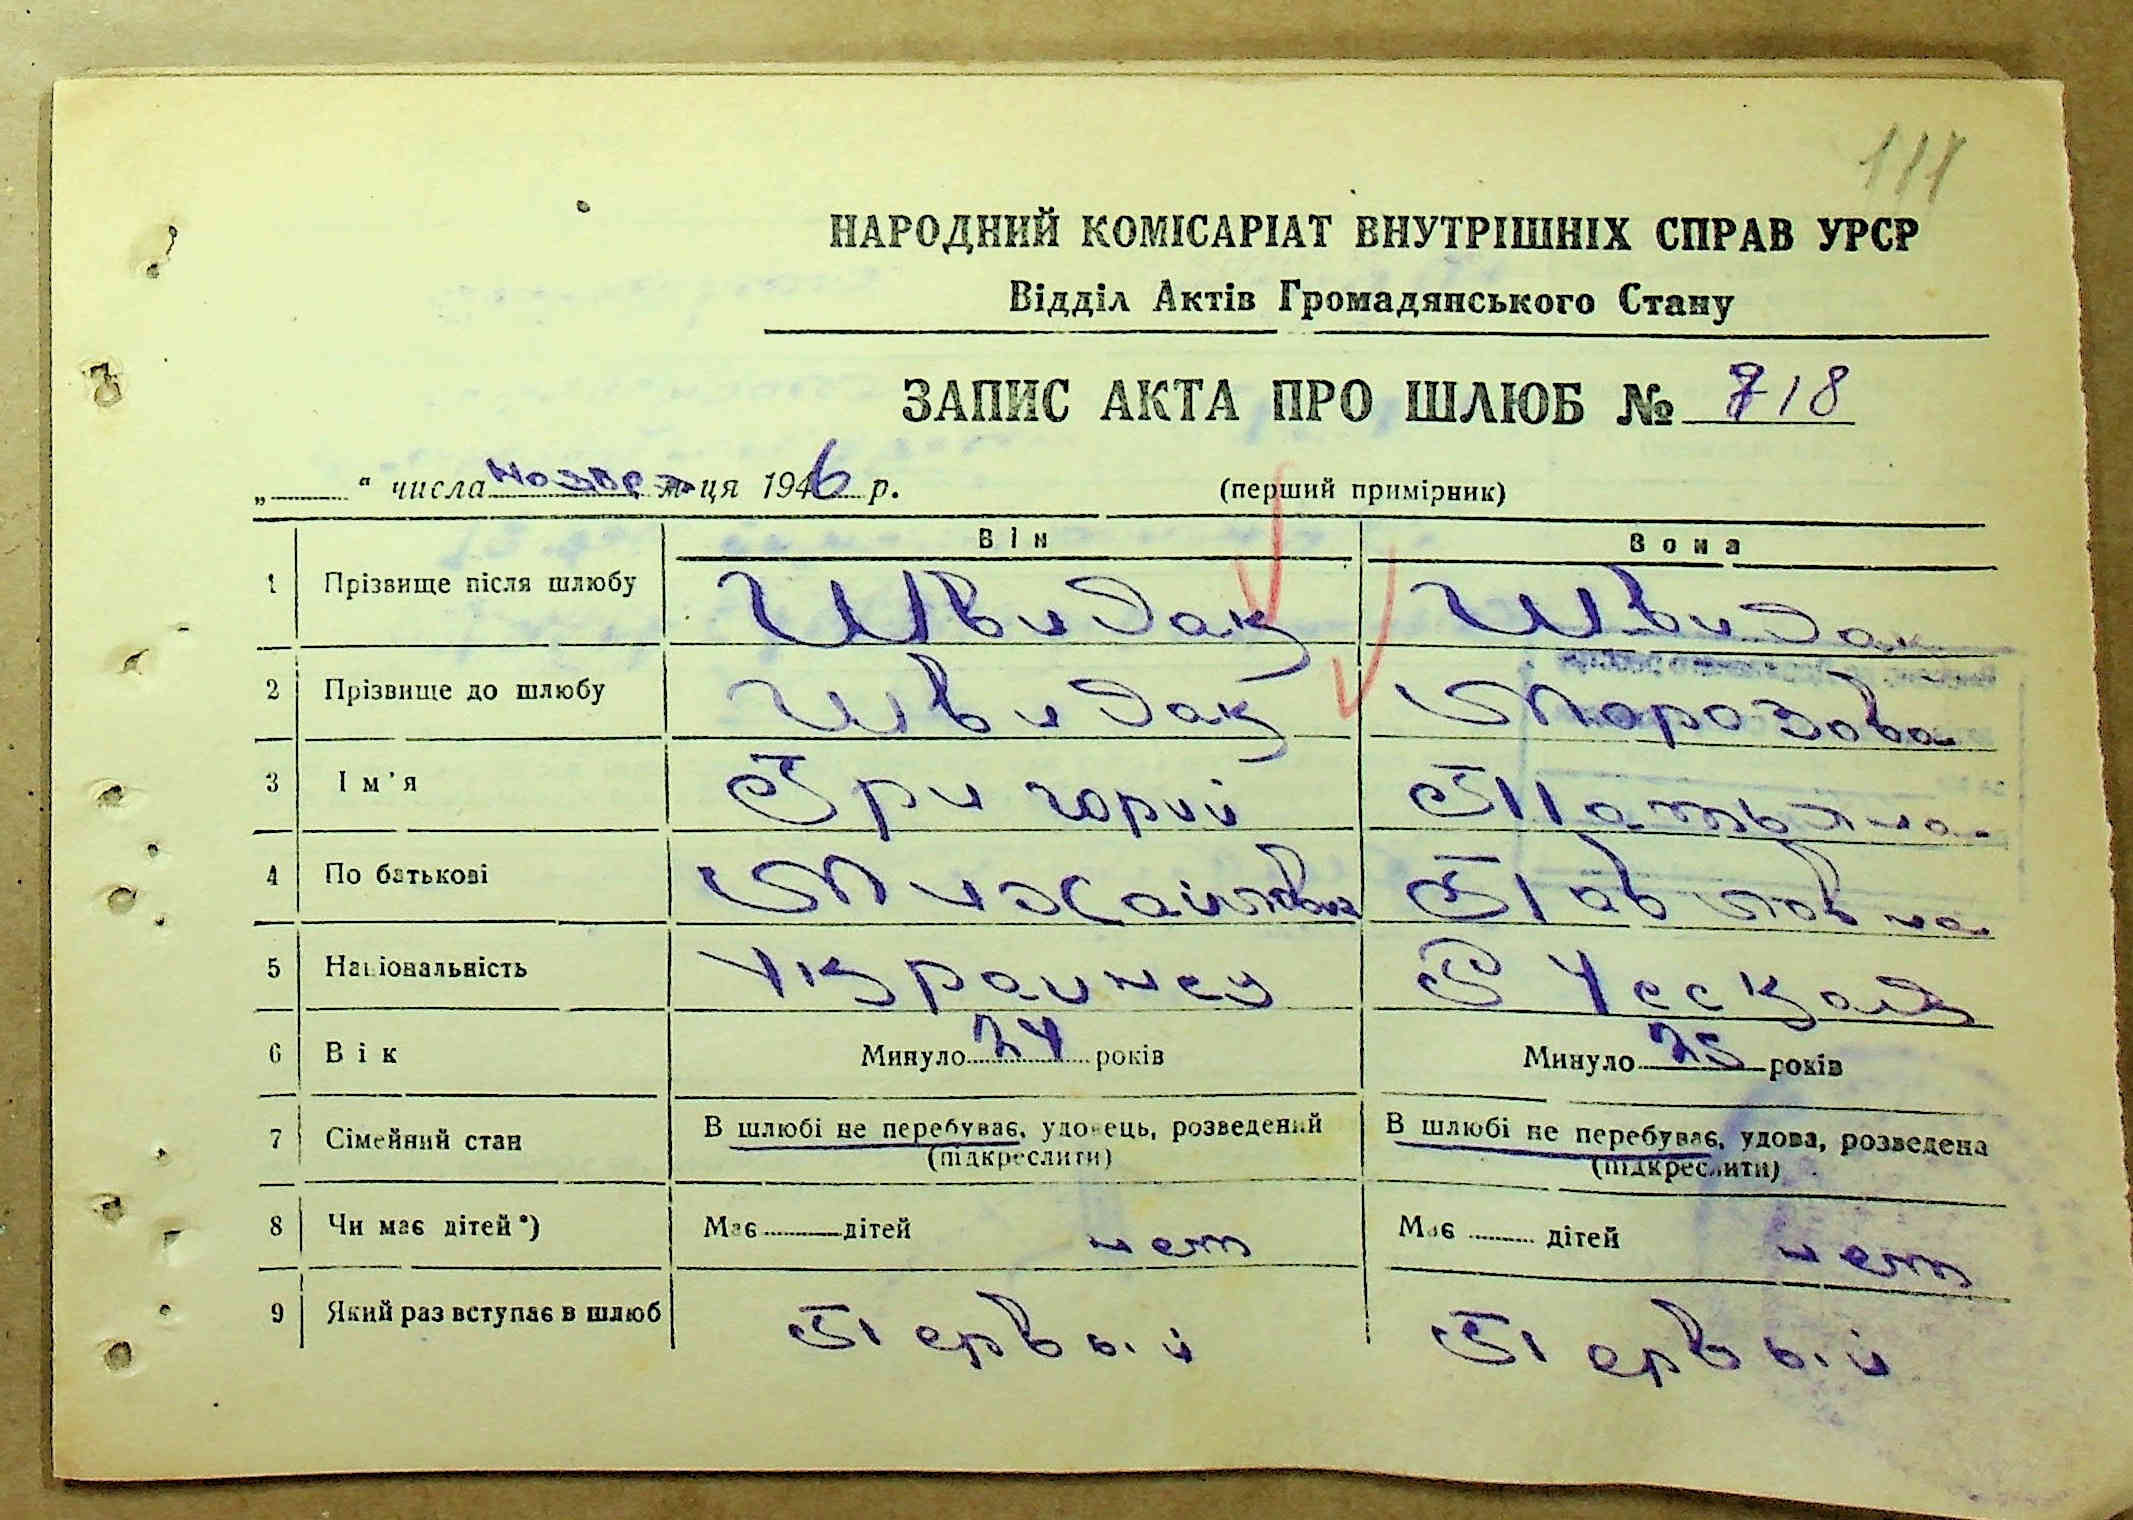 НАРОДНИЙ КОМІСАРІАТ ВНУТРІШНІХ СПРАВ УРСР
Відділ Актів Громадянського Стану
ЗАПИС АКТА ПРО ШЛЮБ № 718
„ “ числа ноябр м-ця 1946 р. (перший примірник)
Він Вона
1 Прізвище після шлюбу Швидак Швидак
2 Прізвище до шлюбу Швидак Морозова
3 Ім'я Григорий Татьяна
4 По батькові Михайлович Павловна
5 Національність Украинец Русская
6 Вік Минуло 24 років Минуло 25 років
7 Сімейний стан В шлюбі не перебуває, удовець, розведений В шлюбі не перебуває, удова, розведена
(підкреслити) (підкреслити)
8 Чи має дітей*) Має дітей нет Має дітей нет
9 Який раз вступає в шлюб Первый Первый